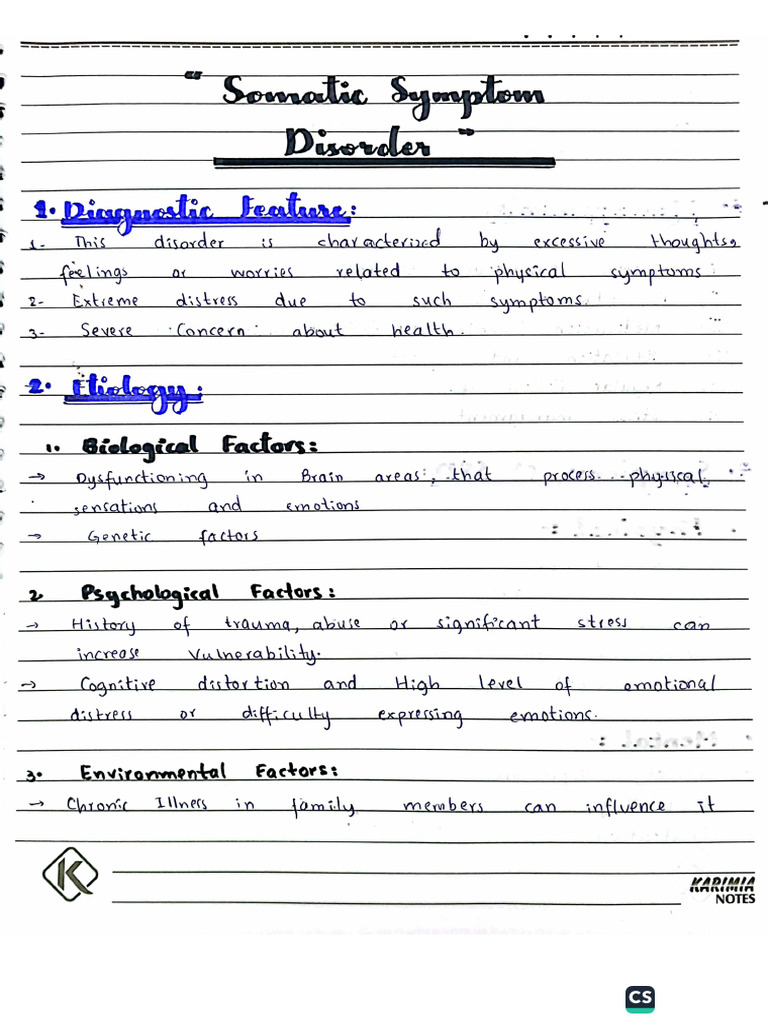 " Somatic Symptom
Disorder "
1. Diagnostic Feature:
1- This disorder is characterized by excessive thoughts,
feelings or worries related to physical symptoms
2- Extreme distress due to such symptoms.
3- Severe Concern about health.
2. Etiology:
1. Biological Factors:
→ Dysfunctioning in Brain areas, that process physical
sensations and emotions
→ Genetic factors
2 Psychological Factors:
→ History of trauma, abuse or significant stress can
increase vulnerability.
→ Cognitive distortion and High level of emotional
distress or difficulty expressing emotions.
3. Environmental Factors:
→ Chronic Illness in family members can influence it
K
KARIMIA
NOTES
CS